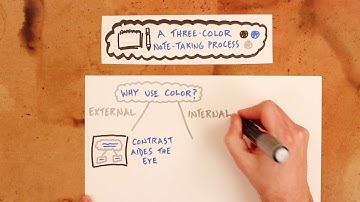 A THREE-COLOR
NOTE-TAKING PROCESS
WHY USE COLOR?
EXTERNAL
INTERNAL
CONTRAST
AIDES THE
EYE